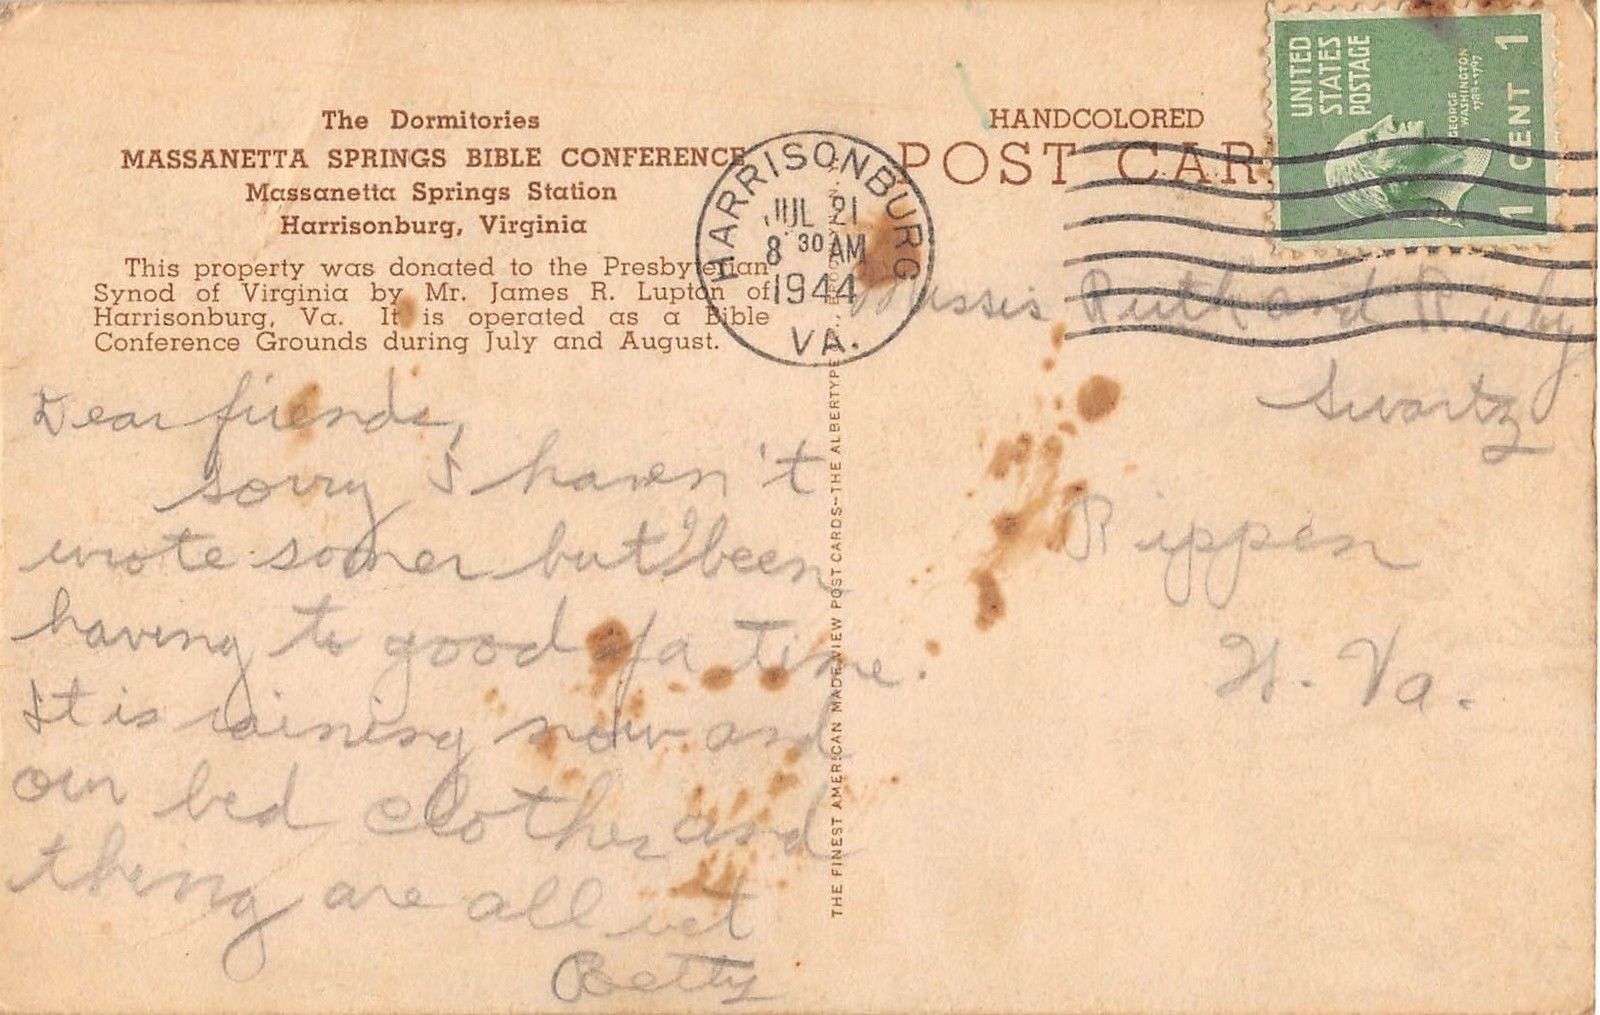 The Dormitories
MASSANETTA SPRINGS BIBLE CONFERENCE
Massanetta Springs Station
Harrisonburg, Virginia
This property was donated to the Presbyterian
Synod of Virginia by Mr. James R. Lupton of
Harrisonburg, Va. It is operated as a Bible
Conference Grounds during July and August.
Dear friends,
sorry I haven't
wrote sooner but I been
having to good of a time.
It is raining now and
our bed clothes and
thing are all wet
Betty
HARRISONBURG
JUL 21
8 30 AM
1944
VA.
THE FINEST AMERICAN MADE VIEW POST CARDS—THE ALBERTYPE
HANDCOLORED
POST CAR
UNITED
STATES
POSTAGE
GEORGE
WASHINGTON
1789-1797
1 CENT 1
Misses Ruth and Ruby
Swartz
Rippen
W. Va.